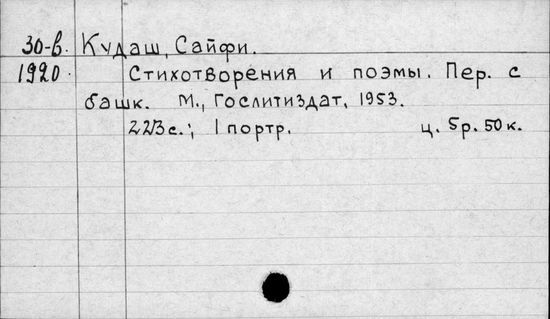 30-в. Кудаш, Сайфи.
1920. Стихотворения и поэмы. Пер. с
башк. М., Гослитиздат, 1953.
223 с.; 1 портр. ц. 5р. 50к.